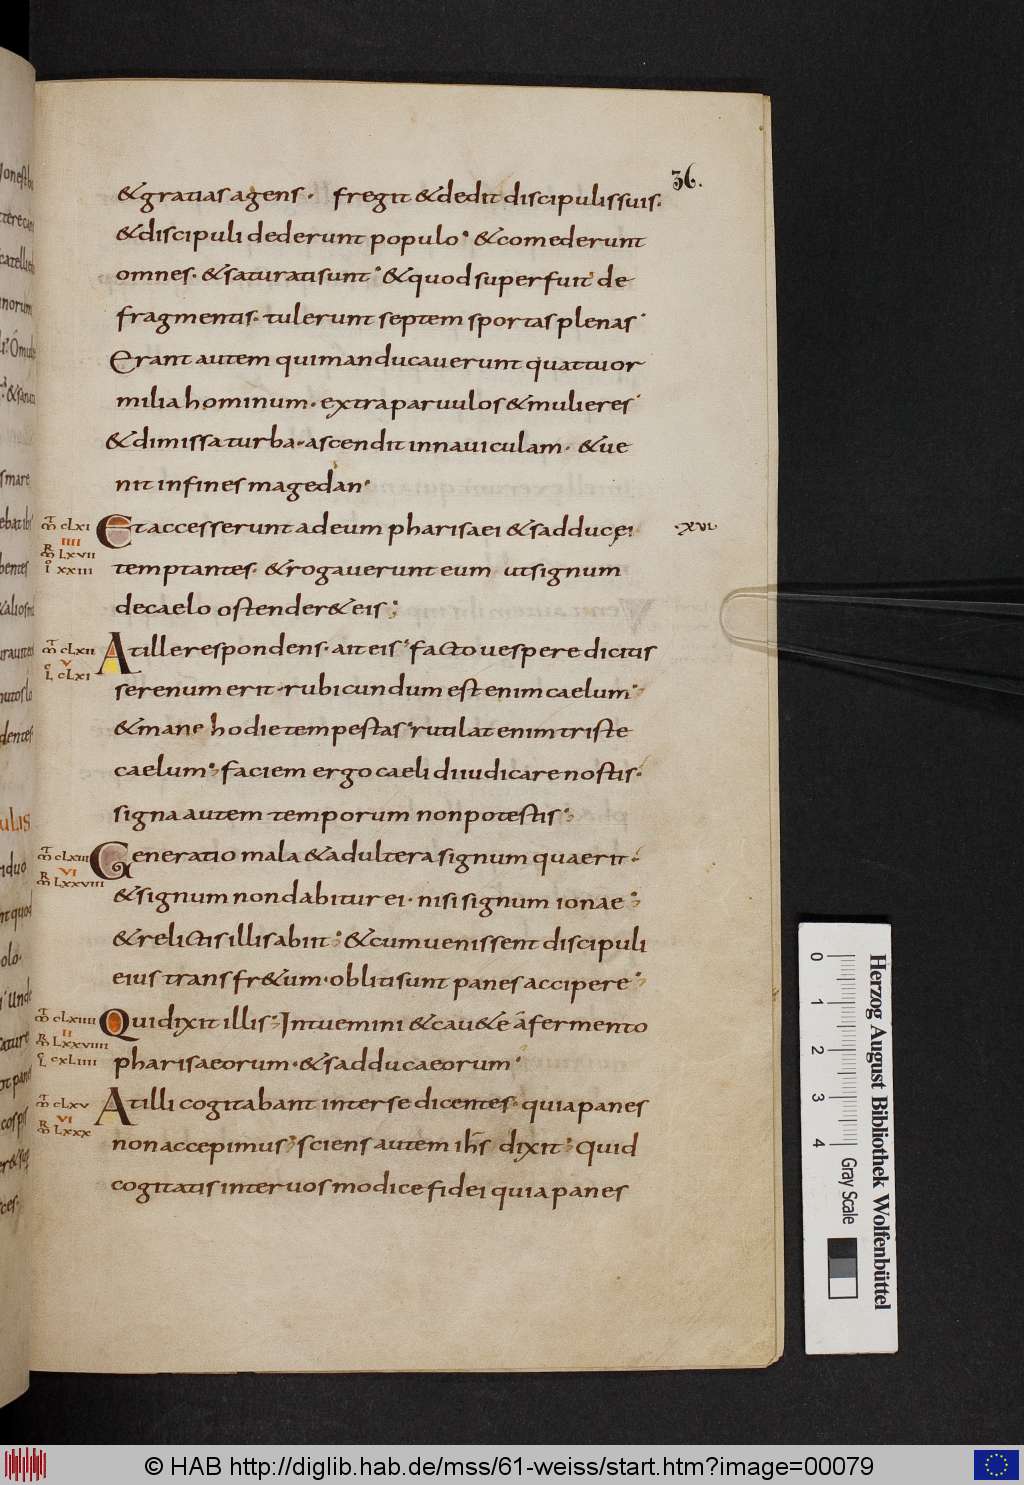 36.
&gratias agens· fregit &dedit discipulis suis.
&discipuli dederunt populo· &comederunt
omnes· &saturati sunt· &quod superfuit de
fragmentis· tulerunt septem sportas plenas·
Erant autem qui manducauerunt quattuor
milia hominum· extra paruulos &mulieres·
&dimissa turba· ascendit in nauiculam· &ue
nit in fines magedan·
m̄ cLXI
IIII
m̄ᴿ LXVII
i° XXIII
Et accesserunt ad eum pharisaei &sadducęi·
·xvi·
temptantes· &rogauerunt eum ut signum
de caelo ostender& eis;
m̄ cLXII
V
L cLXI
At ille respondens· ait eis· facto uespere dicitis
serenum erit· rubicundum est enim caelum·
&mane hodie tempestas· rutilat enim triste
caelum· faciem ergo caeli diiudicare nostis·
signa autem temporum non potestis·
m̄ cLXIII
VI
m̄ᴿ LXXVIII
Generatio mala &adultera signum quaerit·
&signum non dabitur ei· nisi signum ionae·
&relictis illis abiit· &cum uenissent discipuli
eius trans fr&um· obliti sunt panes accipere·
m̄ cLXIIII
II
m̄ᴿ LXXVIIII
L cXLIIII
Qui dixit illis· Intuemini &cau&e á fermento
pharisaeorum· &sadducaeorum·
m̄ cLXV
VI
m̄ᴿ LXXX
At illi cogitabant inter se dicentes· quia panes
non accepimus· sciens autem ih̄s dixit· Quid
cogitatis inter uos modice fidei quia panes
Herzog August Bibliothek Wolfenbüttel
0 1 2 3 4 Gray Scale
© HAB http://diglib.hab.de/mss/61-weiss/start.htm?image=00079